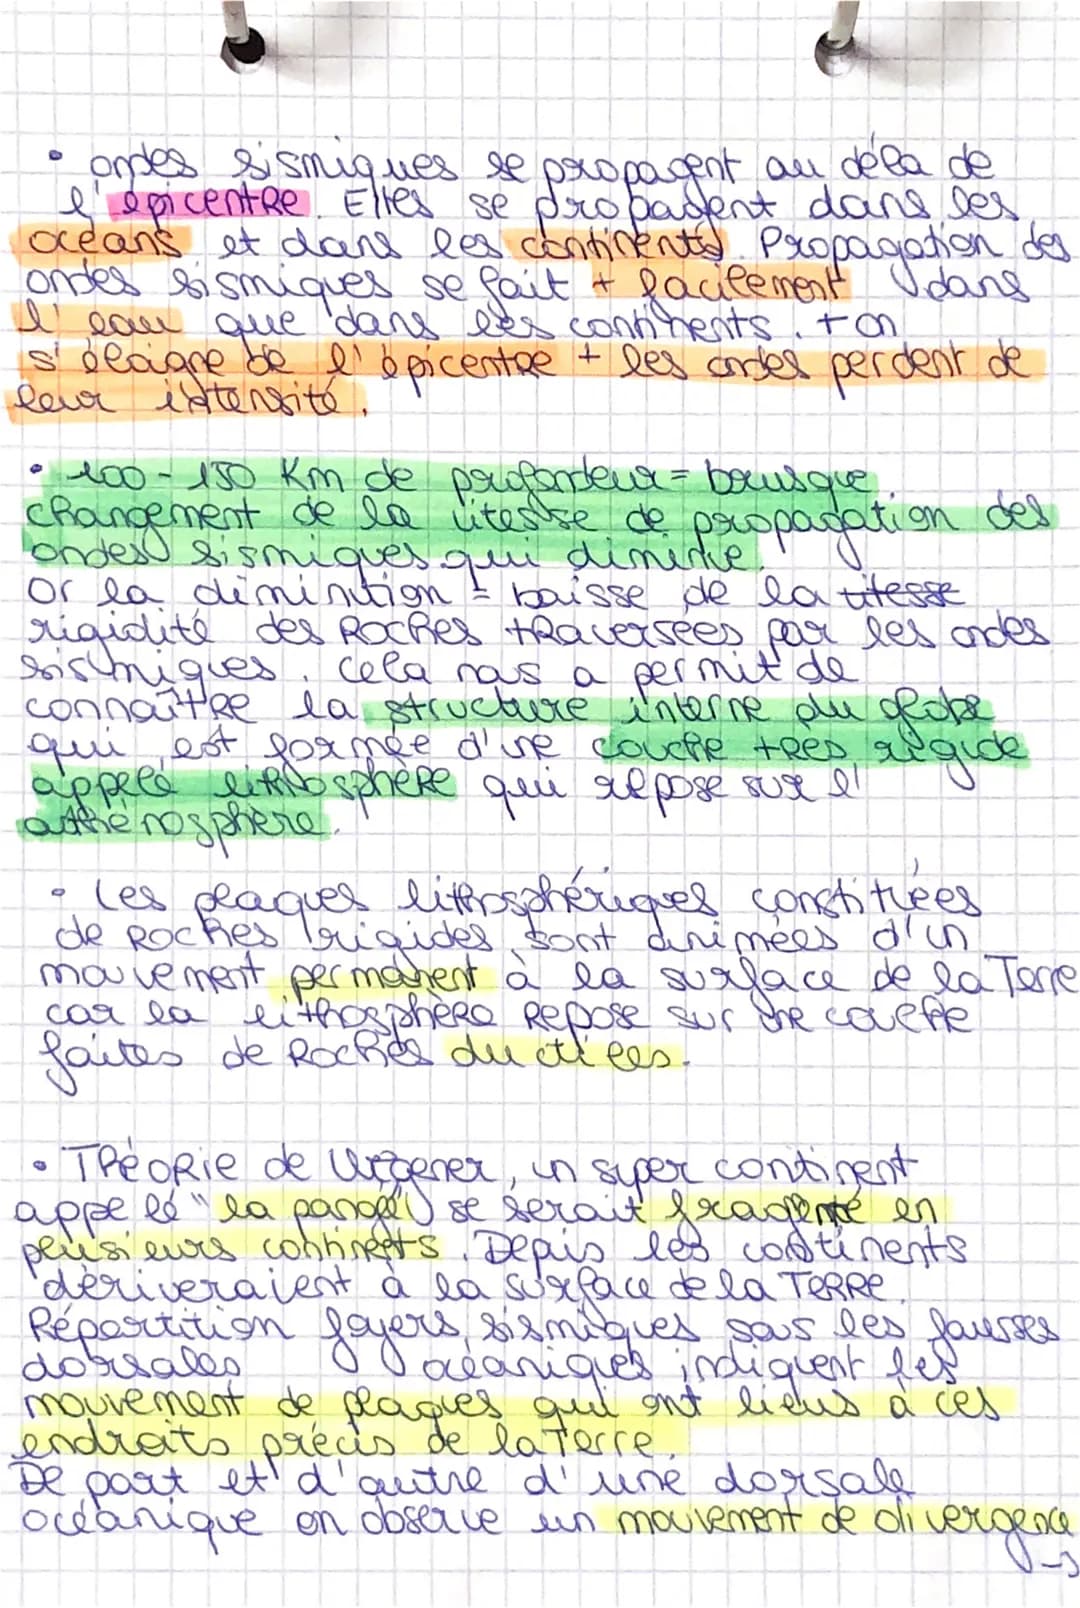 • ondes sismiques se propagent au déla de
l'épicentre. Elles se propagent dans les
océans et dans les continents. Propagation des
ondes sismiques se fait + facilement dans
l'eau que dans les continents. + on
s'éloigne de l'épicentre + les ondes perdent de
leur intensité.
• 100-150 Km de profondeur = brusque
changement de la vitesse de propagation des
ondes sismiques qui diminue.
Or la diminution = baisse de la vitesse
rigidité des Roches traversées par les ondes
sismiques. Cela nous a permit de
connaître la structure interne du globe
qui est formée d'une couche très rigide
appelé lithosphère qui repose sur l'
asthénosphère.
• Les plaques lithosphériques constituées
de Roches rigides sont animées d'un
mouvement permanent à la surface de la Terre
car la lithosphère Repose sur une couche
faites de Roches ductiles.
• Théorie de Wegener, un super continent
appelé "la pangé" se serait fragmenté en
plusieurs continents. Depuis les continents
dériveraient à la surface de la Terre.
Répartition foyers sismiques sous les fausses
dorsales océaniques indiquent les
mouvement de plaques qui ont lieus à ces
endroits précis de la Terre.
De part et d'autre d'une dorsale
océanique on observe un mouvement de divergence
→